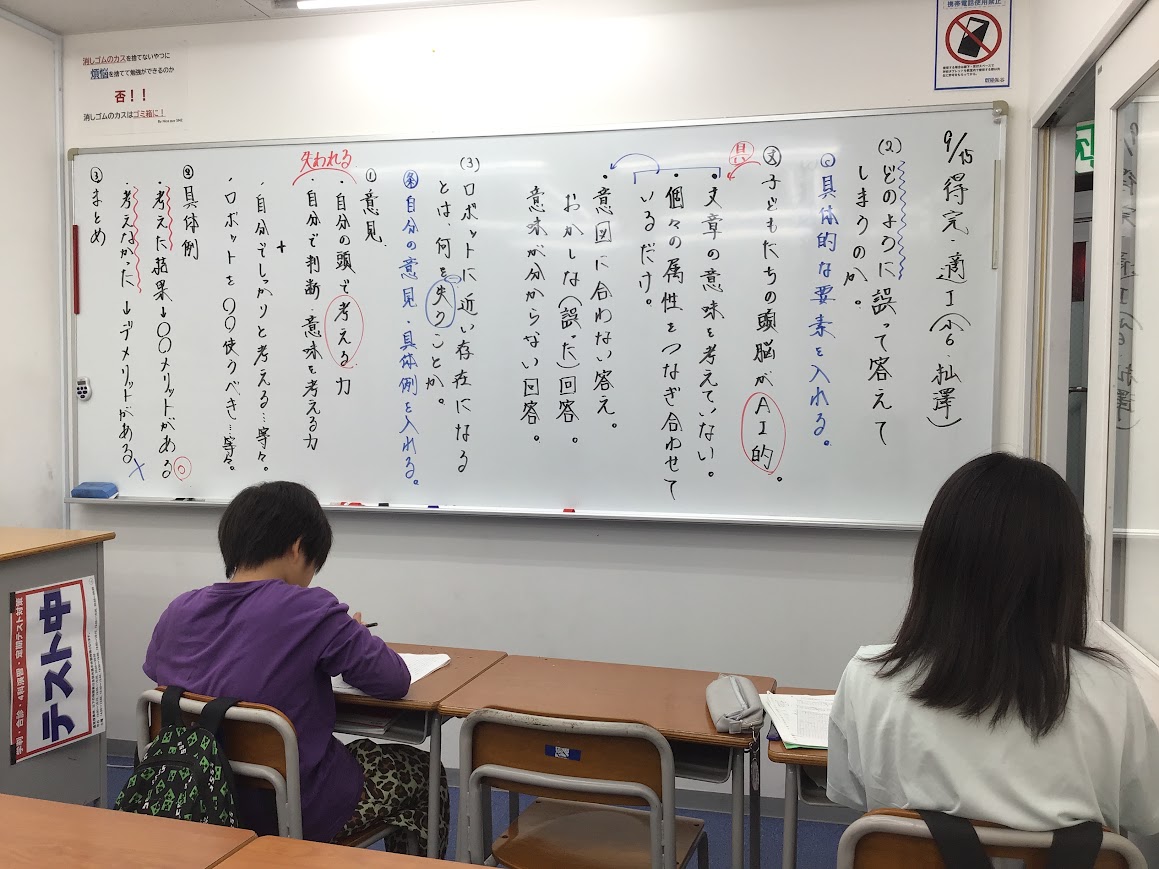 消しゴムのカスを捨てないやつに
煩悩を捨てて勉強ができるのか
否！！
消しゴムのカスはゴミ箱に！
携帯電話使用禁止
9/15 得完・適Ⅰ（小6・払澤）
(2) どのように誤って答えて
しまうのか。
具体的な要素を入れる。
子どもたちの頭脳がAI的。
具
・文章の意味を考えていない。
・個々の属性をつなぎ合わせて
いるだけ。
・意図に合わない答え。
おかしな（誤った）回答。
意味が分からない回答。
(3) ロボットに近い存在になる
とは、何を失うことか。
条 自分の意見・具体例を入れる。
① 意見
失われる
・自分の頭で考える力
・自分で判断・意味を考える力
+
・自分でしっかりと考える…等々。
・ロボットを〇〇使うべき…等々。
② 具体例
・考えた結果→〇〇メリットがある○
・考えなかった→デメリットがある×
③ まとめ
テスト中